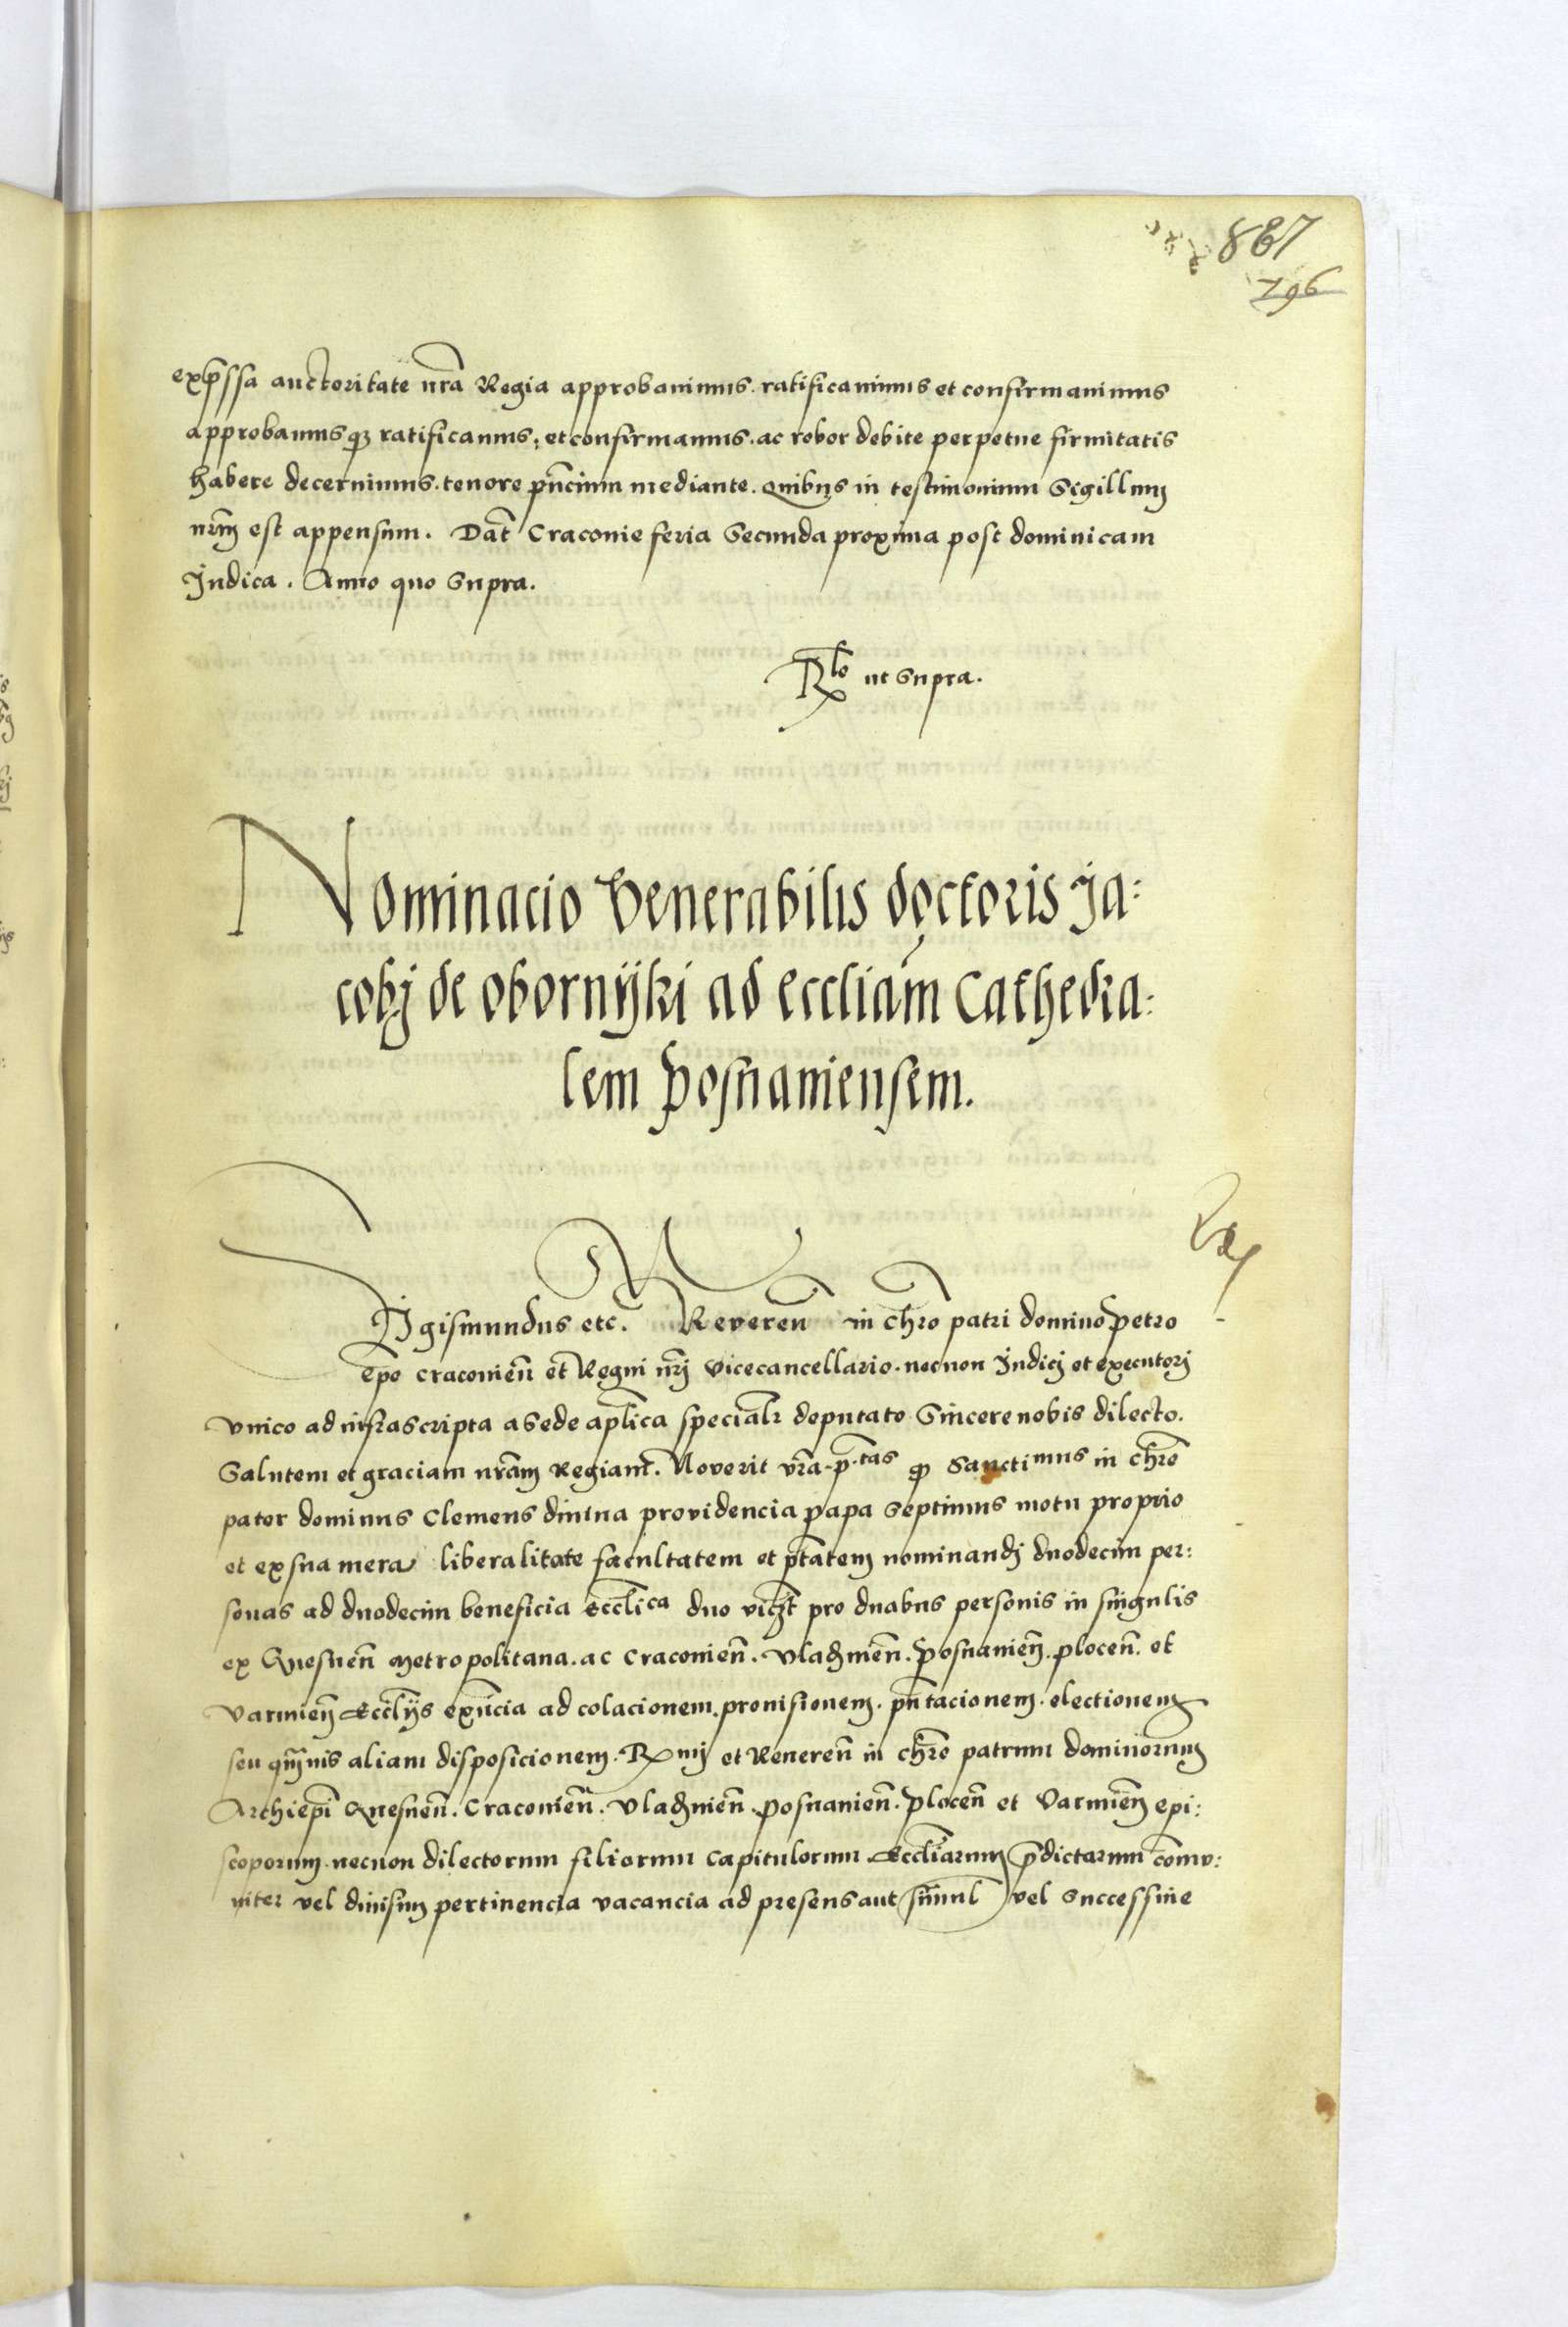 887
796
exp̄ssa auctoritate nr̄a Regia approbauimus. ratificauimus et confirmauimus
approbamusqꝫ ratificamus. et confirmamus. ac robor debite perpetue firmitatis
habere decernimus. tenore pn̄cium mediante. Quibus in testimonium Sigillum
nr̄m est appensum. Dat̄ Craconie feria Secunda proxima post dominicam
Judica. Anno quo Supra.
Rlo ut Supra.
Nominacio Venerabilis doctoris Ja:
cobj de obornijki ad eccliam Cathedra:
lem Posnaniensem.
Sigismundus etc. Reveren̄ in chro patri domino Petro
epo Craconien̄ et Regni nr̄j Vicecancellario. necnon Judicj et executorj
vnico ad infrascripta a Sede aplica specialr deputato Sincere nobis dilecto.
Salutem et graciam nr̄am Regiam. Noverit vr̄a p.tas ꝙ Sanctimus in chro
pater dominus Clemens diuina providencia papa Septimus motu proprio
et ex sua mera liberalitate facultatem et ptatem nominandj duodecim per:
sonas ad duodecim beneficia eccl̄ica duo viczt pro duabus personis in singulis
ex Gnesnen̄ Metropolitana. ac Craconien̄. Vladmien̄. Posnanien̄. plocen̄. et
Varmien̄ Eccl̄ijs exn̄cia ad colacionem. prouisionem. pn̄tacionem. electionem
seu qm̄uis aliam disposicionem. Rmj et Reueren̄ in chro patrum dominorum
Archiepi Gnesnen̄. Craconien̄. Vladmien̄. Posnanien̄. Plocen̄ et Varmien̄ epi:
scoporum. necnon dilectorum filiorum Capitulorum Eccl̄iarum p̄dictarum com̄v:
niter vel diuisim pertinencia vacancia ad presens aut simul vel Successiue